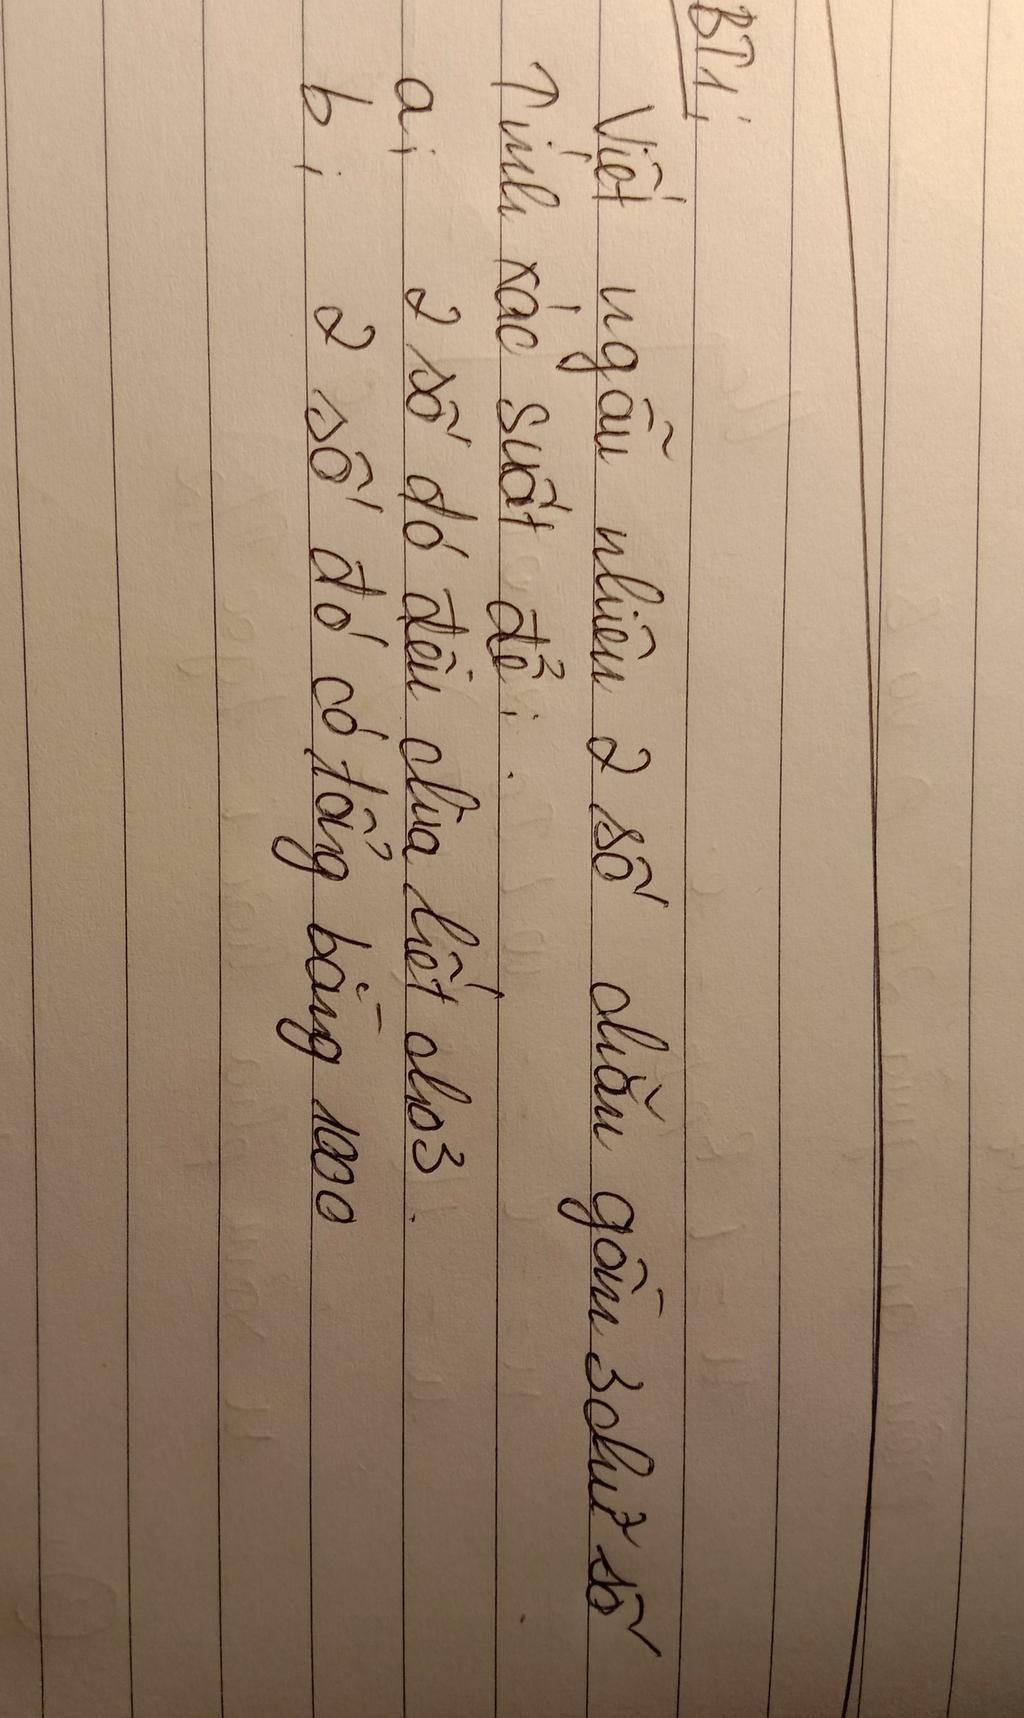 BT1;
Viết ngẫu nhiên 2 số chẵn gồm 3 chữ số
Tính xác suất để:
a; 2 số đó đều chia hết cho 3.
b; 2 số đó có tổng bằng 1000